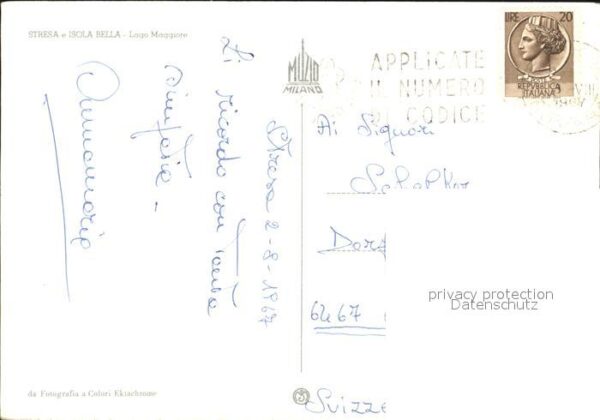 STRESA e ISOLA BELLA - Lago Maggiore
Stresa 2-8-1967
Vi ricordo con tanta
simpatia -
Annamaria
MUZIO
MILANO
APPLICATE
IL NUMERO
DI CODICE
LIRE 20
POSTE
REPVBBLICA
ITALIANA
Ai Signori
6467
Svizze
privacy protection
Datenschutz
da Fotografia a Colori Ektachrome